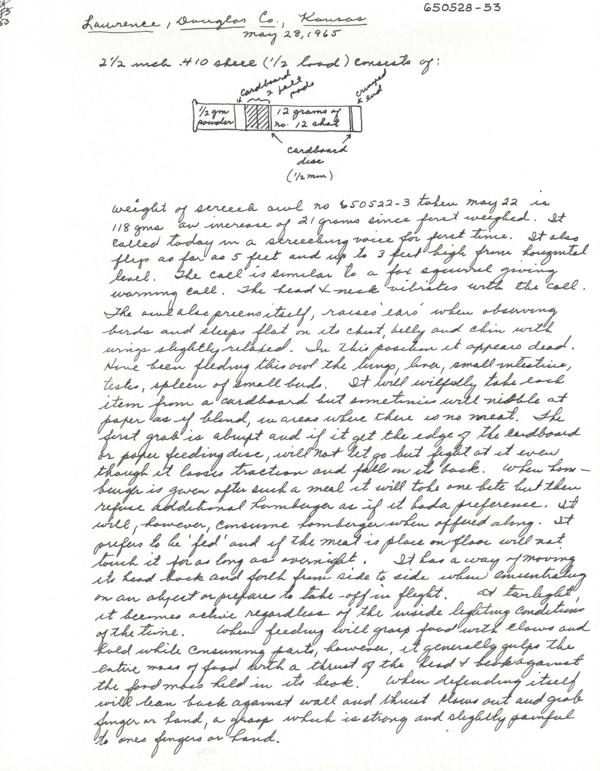 650528-53
Lawrence, Douglas Co., Kansas
May 28, 1965
2 1/2 inch .410 shell (1/2 load) consists of:
cardboard
2 felt
pads
crimped
end
1/2 gm
powder
12 grams of
no. 12 shot
cardboard
disc
(1/2 mm)
Weight of screech owl no 650522-3 taken May 22 is
118 gms an increase of 21 grams since first weighed. It
called today in a screeching voice for first time. It also
flys as far as 5 feet and up to 3 feet high from horizontal
level. The call is similar to a fox squirrel giving
warning call. The head & neck vibrates with the call.
The owl also preens itself, raises 'ears' when observing
birds and sleeps flat on its chest, belly and chin with
wings slightly relaxed. In this position it appears dead.
Have been feeding this owl the lungs, liver, small intestine,
testes, spleen of small birds. It will wilfedly take each
item from a cardboard but sometimes will nibble at
paper as if blind, in areas where there is no meat. The
first grab is abrupt and if it get the edge of the cardboard
or paper feeding disc, will not let go but fight at it even
though it looses traction and falls on its back. When ham-
burger is given after such a meal it will take one bite but then
refuse additional hamberger as if it had a preference. It
will, however, consume hamberger when offered along. It
prefers to be 'fed' and if the meat is place on floor will not
touch it for as long as overnight. It has a way of moving
its head back and forth from side to side when concentrating
on an object or prepares to take-off in flight. At twilight,
it becomes active regardless of the inside lighting conditions
of the time. When feeding will grasp food with claws and
hold while consuming parts, however, it generally gulps the
entire mass of food with a thrust of the head & beak against
the food mass held in its beak. When defending itself
will lean back against wall and thrust claws out and grab
finger or hand, a grasp which is strong and slightly painful
to ones fingers or hand.